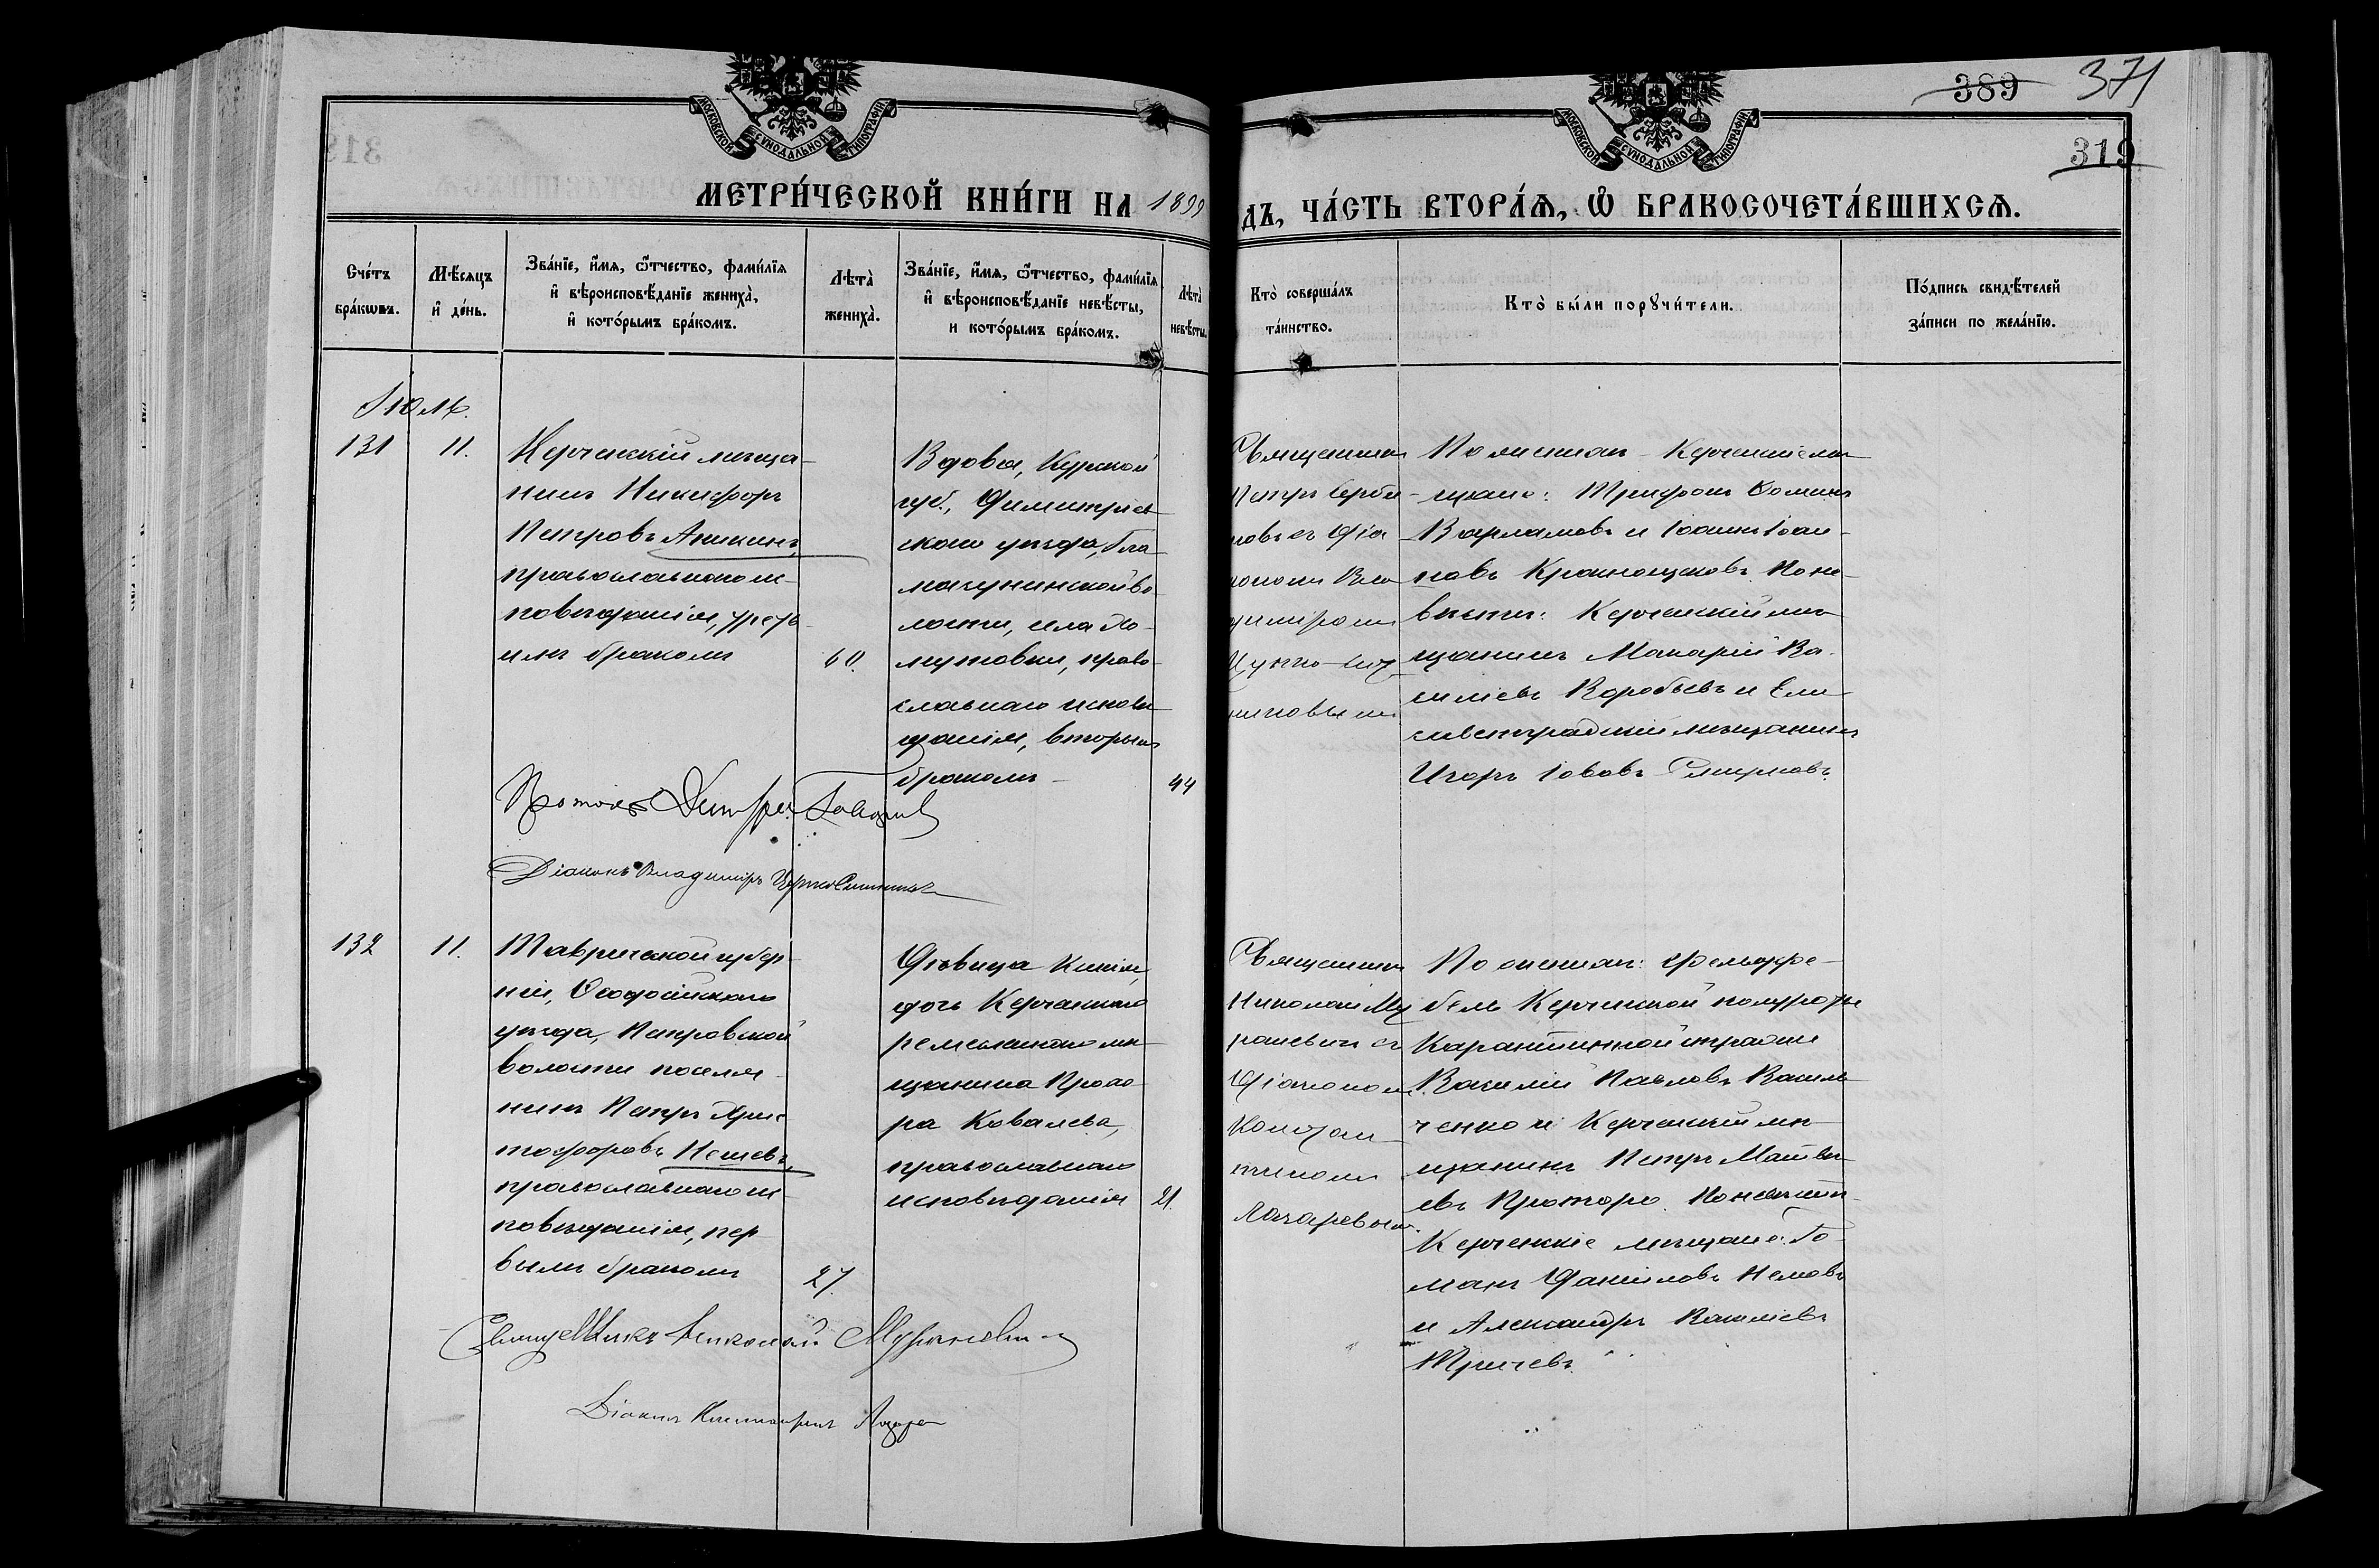 389 371
319
МОСКОВСКОЙ СѴНОДАЛЬНОЙ ТИПОГРАФІИ
МОСКОВСКОЙ СѴНОДАЛЬНОЙ ТИПОГРАФІИ
МЕТРИ́ЧЕСКОЙ КНИ́ГИ НА 1899
ДЪ, ЧА́СТЬ ВТОРА́Ѧ, Ѡ БРАКОСОЧЕТА́ВШИХСѦ.
Сче́тъ
бра́кѡвъ.
Мѣ́сяцъ
и҆ де́нь.
Зва́нїе, и҆́мѧ, ѻ҆́тчество, фами́лїѧ
и҆ вѣроисповѣ́данїе жениха̀,
и҆ кото́рымъ бра́комъ.
Лѣта̀
жениха̀.
Зва́нїе, и҆́мѧ, ѻ҆́тчество, фами́лїѧ
и҆ вѣроисповѣ́данїе невѣ́сты,
и кото́рымъ бра́комъ.
Лѣта̀
невѣ́сты.
Кто̀ соверша́лъ
та́инство.
Кто̀ бы́ли порꙋчи́тели.
По́дпись свидѣ́телей
за́писи по жела́нїю.
Іюль.
131
11.
Керченскій мѣща-
нинъ Никифоръ
Петровъ Аникинъ,
православнаго ис-
повѣданія, треть-
имъ бракомъ
60.
Вдова, Курской
губ., Димитріев-
скаго уѣзда,
во-
лости, села Хо-
мутовки, право-
славнаго исповѣ-
данія, вторымъ
бракомъ
44
Священникъ
Петръ Серби-
новъ съ Діа-
кономъ Вла-
диміромъ
По женихѣ Керченскіе мѣ-
щане: Трифонъ Ѳоминъ
Варламовъ и Іоаннъ Іоан-
новъ Краснощековъ. По не-
вѣстѣ: Керченскій мѣ-
щанинъ Макарій Ва-
силіевъ Воробьевъ и Ели-
саветградскій мѣщанинъ
Игоръ Іововъ Смирновъ.
Діаконъ Владиміръ
132
11.
Таврической губер-
ніи, Ѳеодосійскаго
уѣзда, Петровской
волости поселя-
нинъ Петръ Хрис-
тофоровъ Нешевъ,
православнаго ис-
повѣданія, пер-
вымъ бракомъ
27.
Дѣвица Ксенія,
дочь Керченскаго
ремесленнаго мѣ-
щанина Прохо-
ра Ковалева,
православнаго
исповѣданія
21.
Священникъ
Николай Му-
раневичъ съ
Діакономъ
Констан-
тиномъ
Лазаревымъ.
По женихѣ: фельдфе-
бель Керченской полуроты
Карантинной стражи
Василій Павловъ Василь-
ченко и Керченскій мѣ-
щанинъ Петръ Матвѣ-
евъ Проторо. По невѣстѣ
Керченскіе мѣщане: Ро-
манъ Даніиловъ Немовъ
и Александръ Василіевъ
Тричевъ.
Священникъ Николай Мураневичъ
Діаконъ